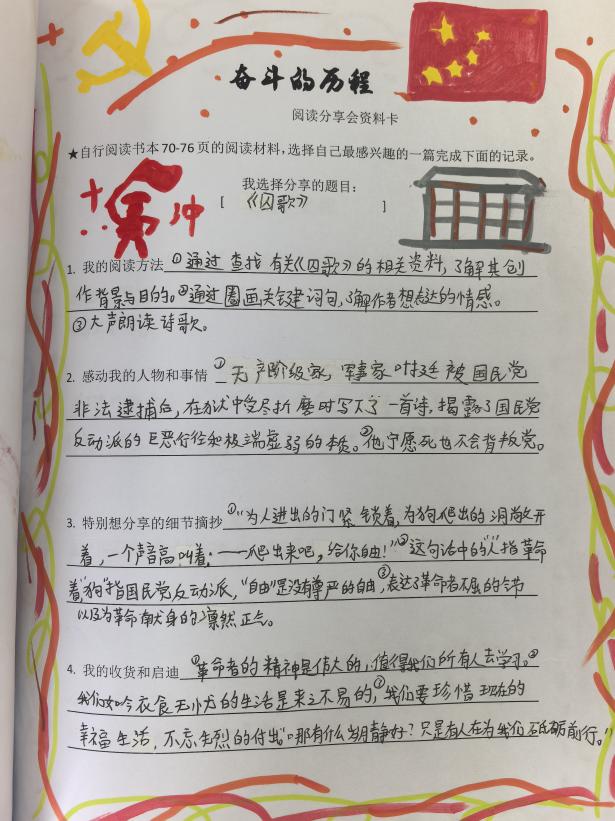 奋斗的历程
阅读分享会资料卡
★自行阅读书本70-76页的阅读材料，选择自己最感兴趣的一篇完成下面的记录。
我选择分享的题目：
[《囚歌》]
冲
1. 我的阅读方法①通过查找有关《囚歌》的相关资料，了解其创
作背景与目的。②通过圈画关键词句，了解作者想表达的情感。
③大声朗读诗歌。
2. 感动我的人物和事情①无产阶级家，军事家叶挺被国民党
非法逮捕后，在狱中受尽折磨时写下了一首诗，揭露了国民党
反动派的巨恶行径和极端虚弱的本质。②他宁愿死也不会背叛党。
3. 特别想分享的细节摘抄①“为人进出的门紧锁着，为狗爬出的洞敞开
着，一个声音高叫着：——爬出来吧，给你自由！”②这句话中的“人”指革命
者，“狗”指国民党反动派，“自由”是没有尊严的自由，③表达了革命者不屈的气节
以及为革命献身的凛然正气。
4. 我的收货和启迪①革命者的精神是伟大的，值得我们所有人去学习。②
我们如今衣食无忧的生活是来之不易的，③我们要珍惜现在的
幸福生活，不忘先烈的付出。“那有什么岁月静好？只是有人在为我们砥砺前行。”